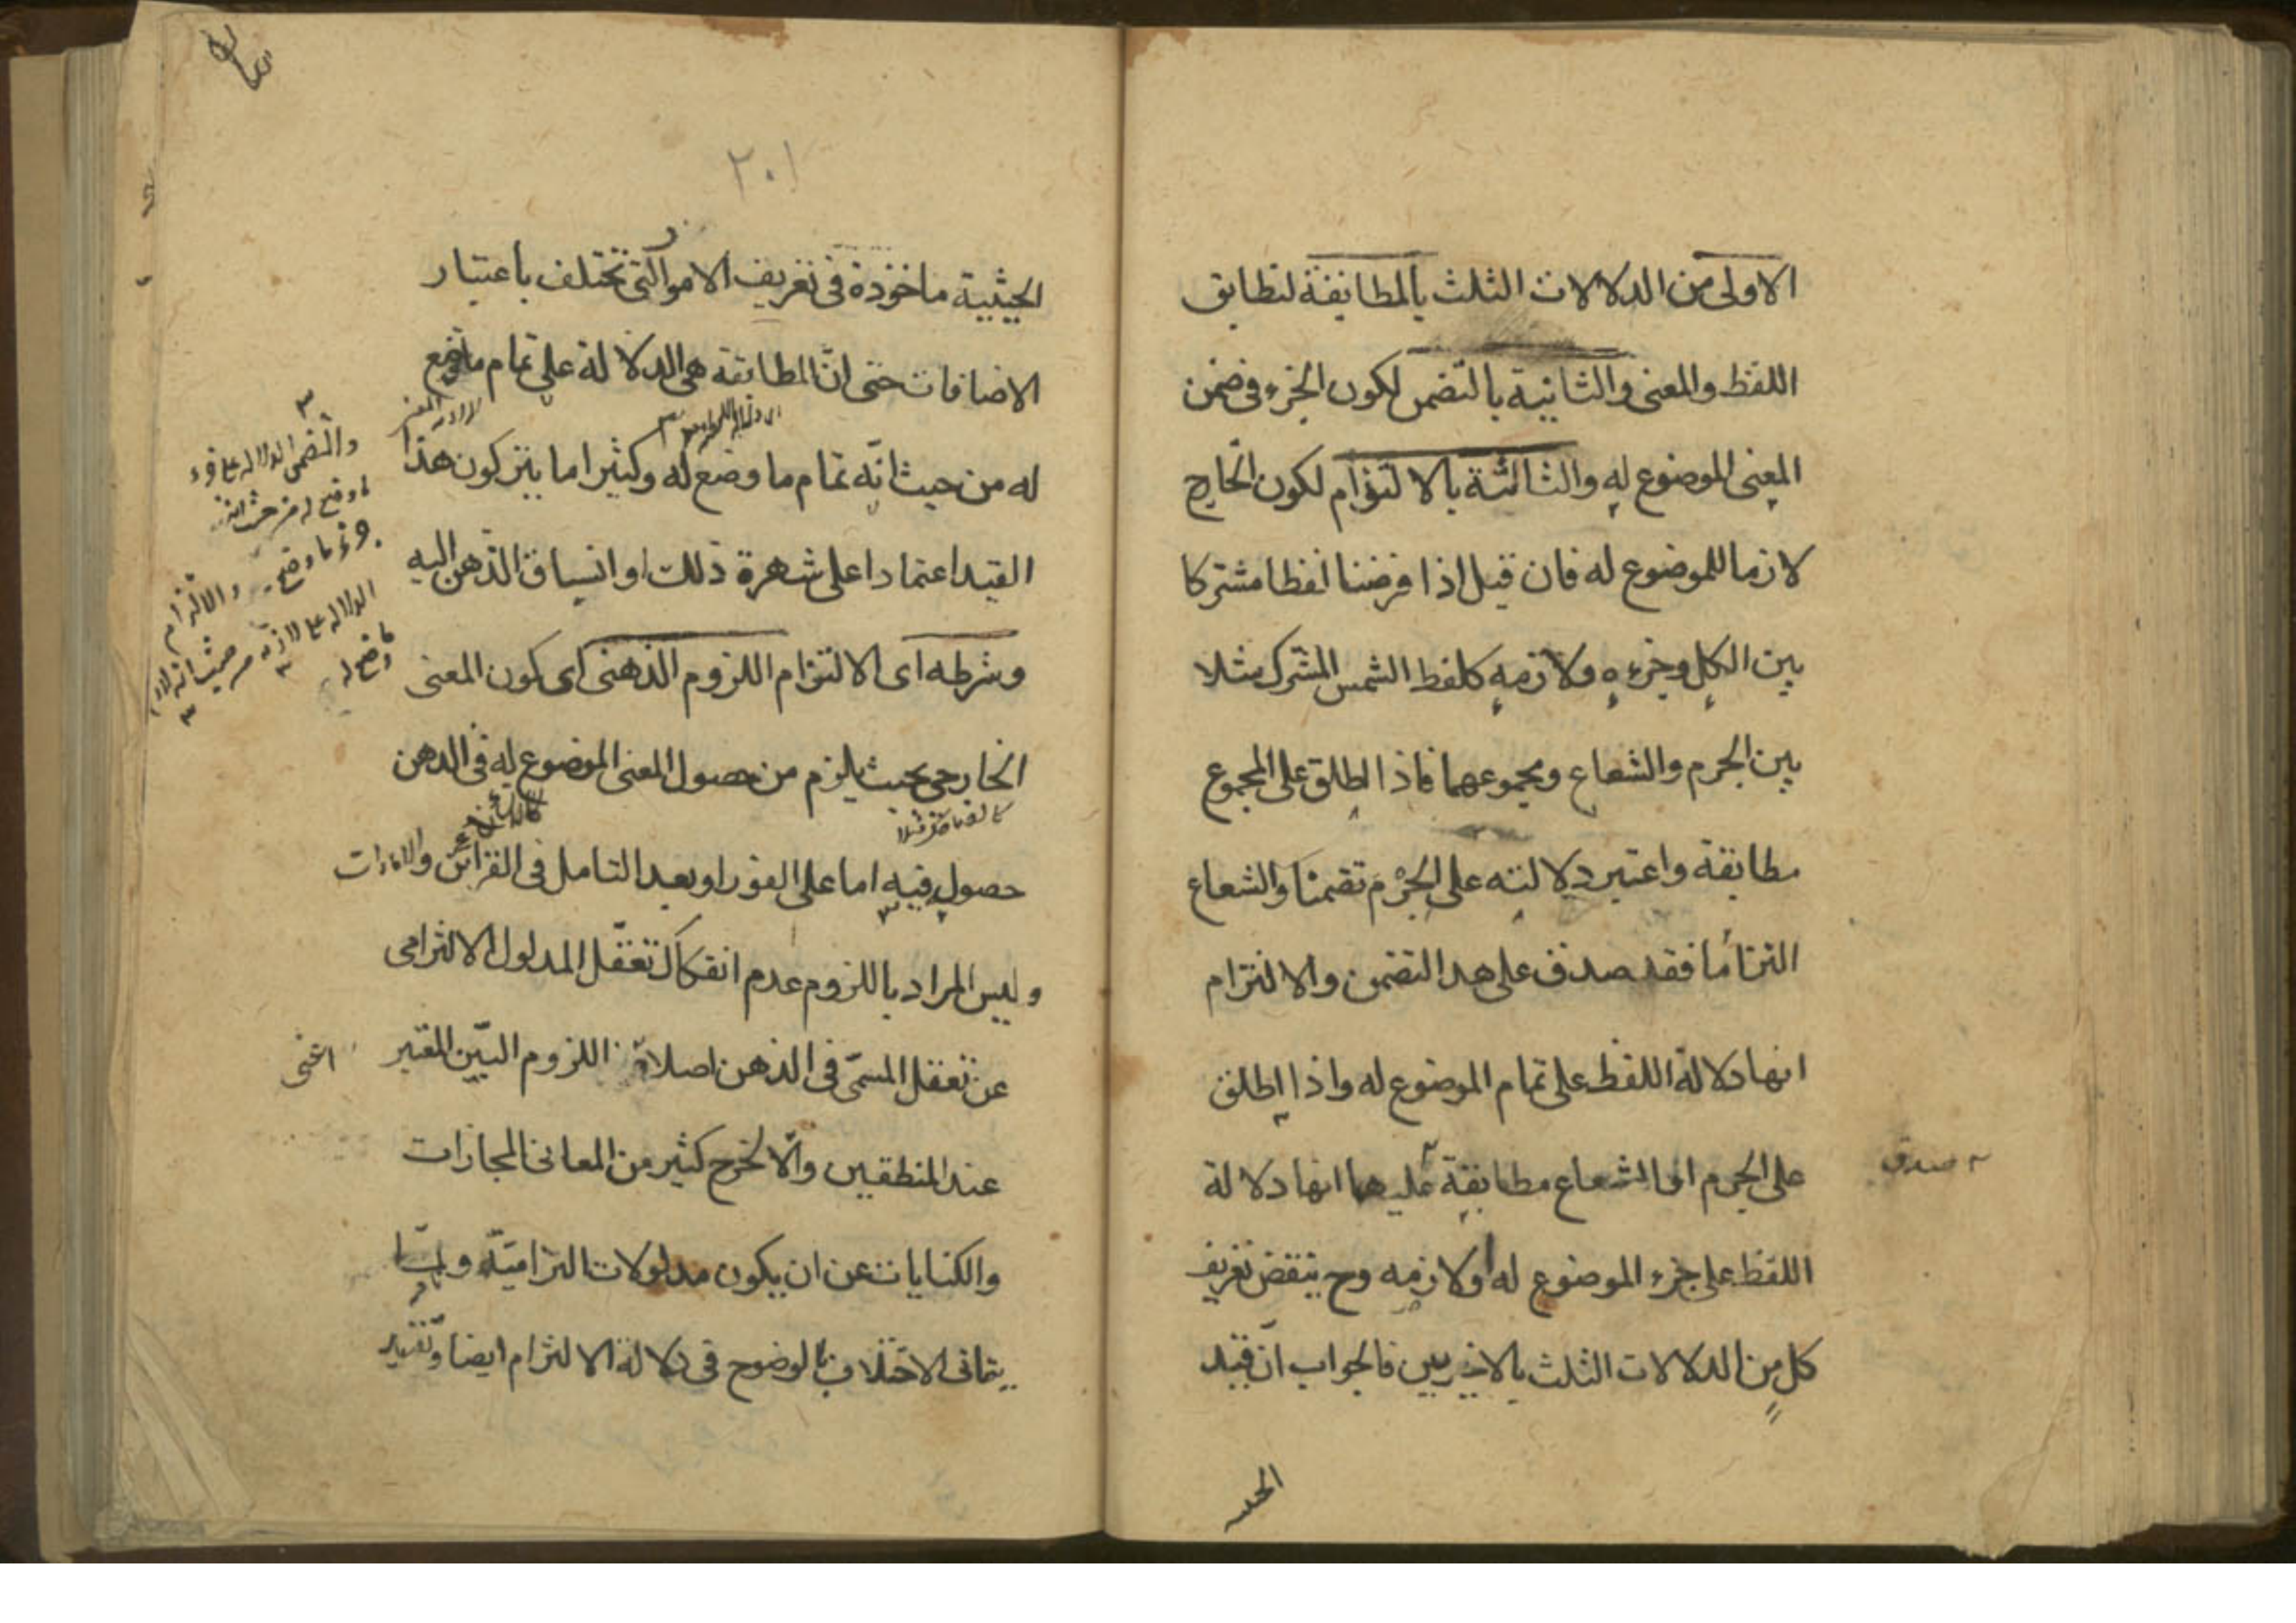 الاولى من الدلالات الثلث بالمطابقة لتطابق
اللفظ والمعنى والثانية بالتضمن لكون الجزء فى ضمن
المعنى الموضوع له والثالثة بالالتزام لكون الخارج
لازما للموضوع له فان قيل اذا فرضنا لفظا مشتركا
بين الكل وجزءه ولازمه كلفظ الشمس المشترك مثلا
بين الجرم والشعاع ومجموعهما فاذا اطلق على المجموع
مطابقة واعتبر دلالته على الجرم تضمنا والشعاع
التزاما فقد صدق على هذا التضمن والالتزام
انها دلالة اللفظ على تمام الموضوع له واذا اطلق
على الجرم او الشعاع مطابقة عليهما انها دلالة
صدق
اللفظ على جزء الموضوع له او لازمه وح ينتقض تعريف
كل من الدلالات الثلث بالاخيريين فالجواب ان قيد
الحيـ
٢٠١
الحيثية ماخوذة فى تعريف الامور التى تختلف باعتبار
الاضافات حتى ان المطابقة هى الدلالة على تمام ما وضع
له من حيث انه تمام ما وضع له وكثيرا ما يترك هذا
والتضمن الدلالة على جزء
ما وضع له من حيث انه
جزء ما وضع له والالتزام
الدلالة على لازمه من حيث انه لازم
ما وضع له
القيد اعتمادا على شهرة ذلك او انسياق الذهن اليه
وشرطه اى الالتزام اللزوم الذهنى اى كون المعنى
الخارجى بحيث يلزم من حصول المعنى الموضوع له فى الذهن
حصوله فيه اما على الفور او بعد التامل فى القرائن والامارات
وليس المراد باللزوم عدم انفكاك تعقل المدلول الالتزامى
عن تعقل المسمى فى الذهن اصلا اللزوم البين المعتبر
اعنى
عند المنطقيين والا لخرج كثير من المعانى المجازات
والكنايات عن ان يكون مدلولات التزامية ولما
يتاتى الاختلاف بالوضوح فى دلالة الالتزام ايضا وتقييد